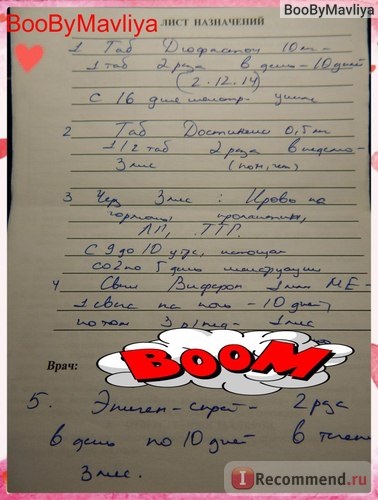 BooByMavliya
BooByMavliya
ЛИСТ НАЗНАЧЕНИЙ
1 Таб Дюфастон 10 мг -
1 таб 2 раза в день - 10 дней
(2.12.14)
с 16 дня менстр. цикла
2 Таб Достинекс 0,5 мг
1/2 таб 2 раза в неделю -
3 мес (пон, чет)
3 Через 3 мес: Кровь на
гормоны: пролактин,
ЛГ, ТТГ
с 9 до 10 утра, натощак
со 2 по 5 день менструации
4 Свечи Виферон 1 млн МЕ -
1 свеча на ночь - 10 дней,
потом 3 р/нед - 1 мес
BOOM
Врач:
5. Эпиген-спрей - 2 раза
в день по 10 дней в течение
3 мес.
I Recommend.ru